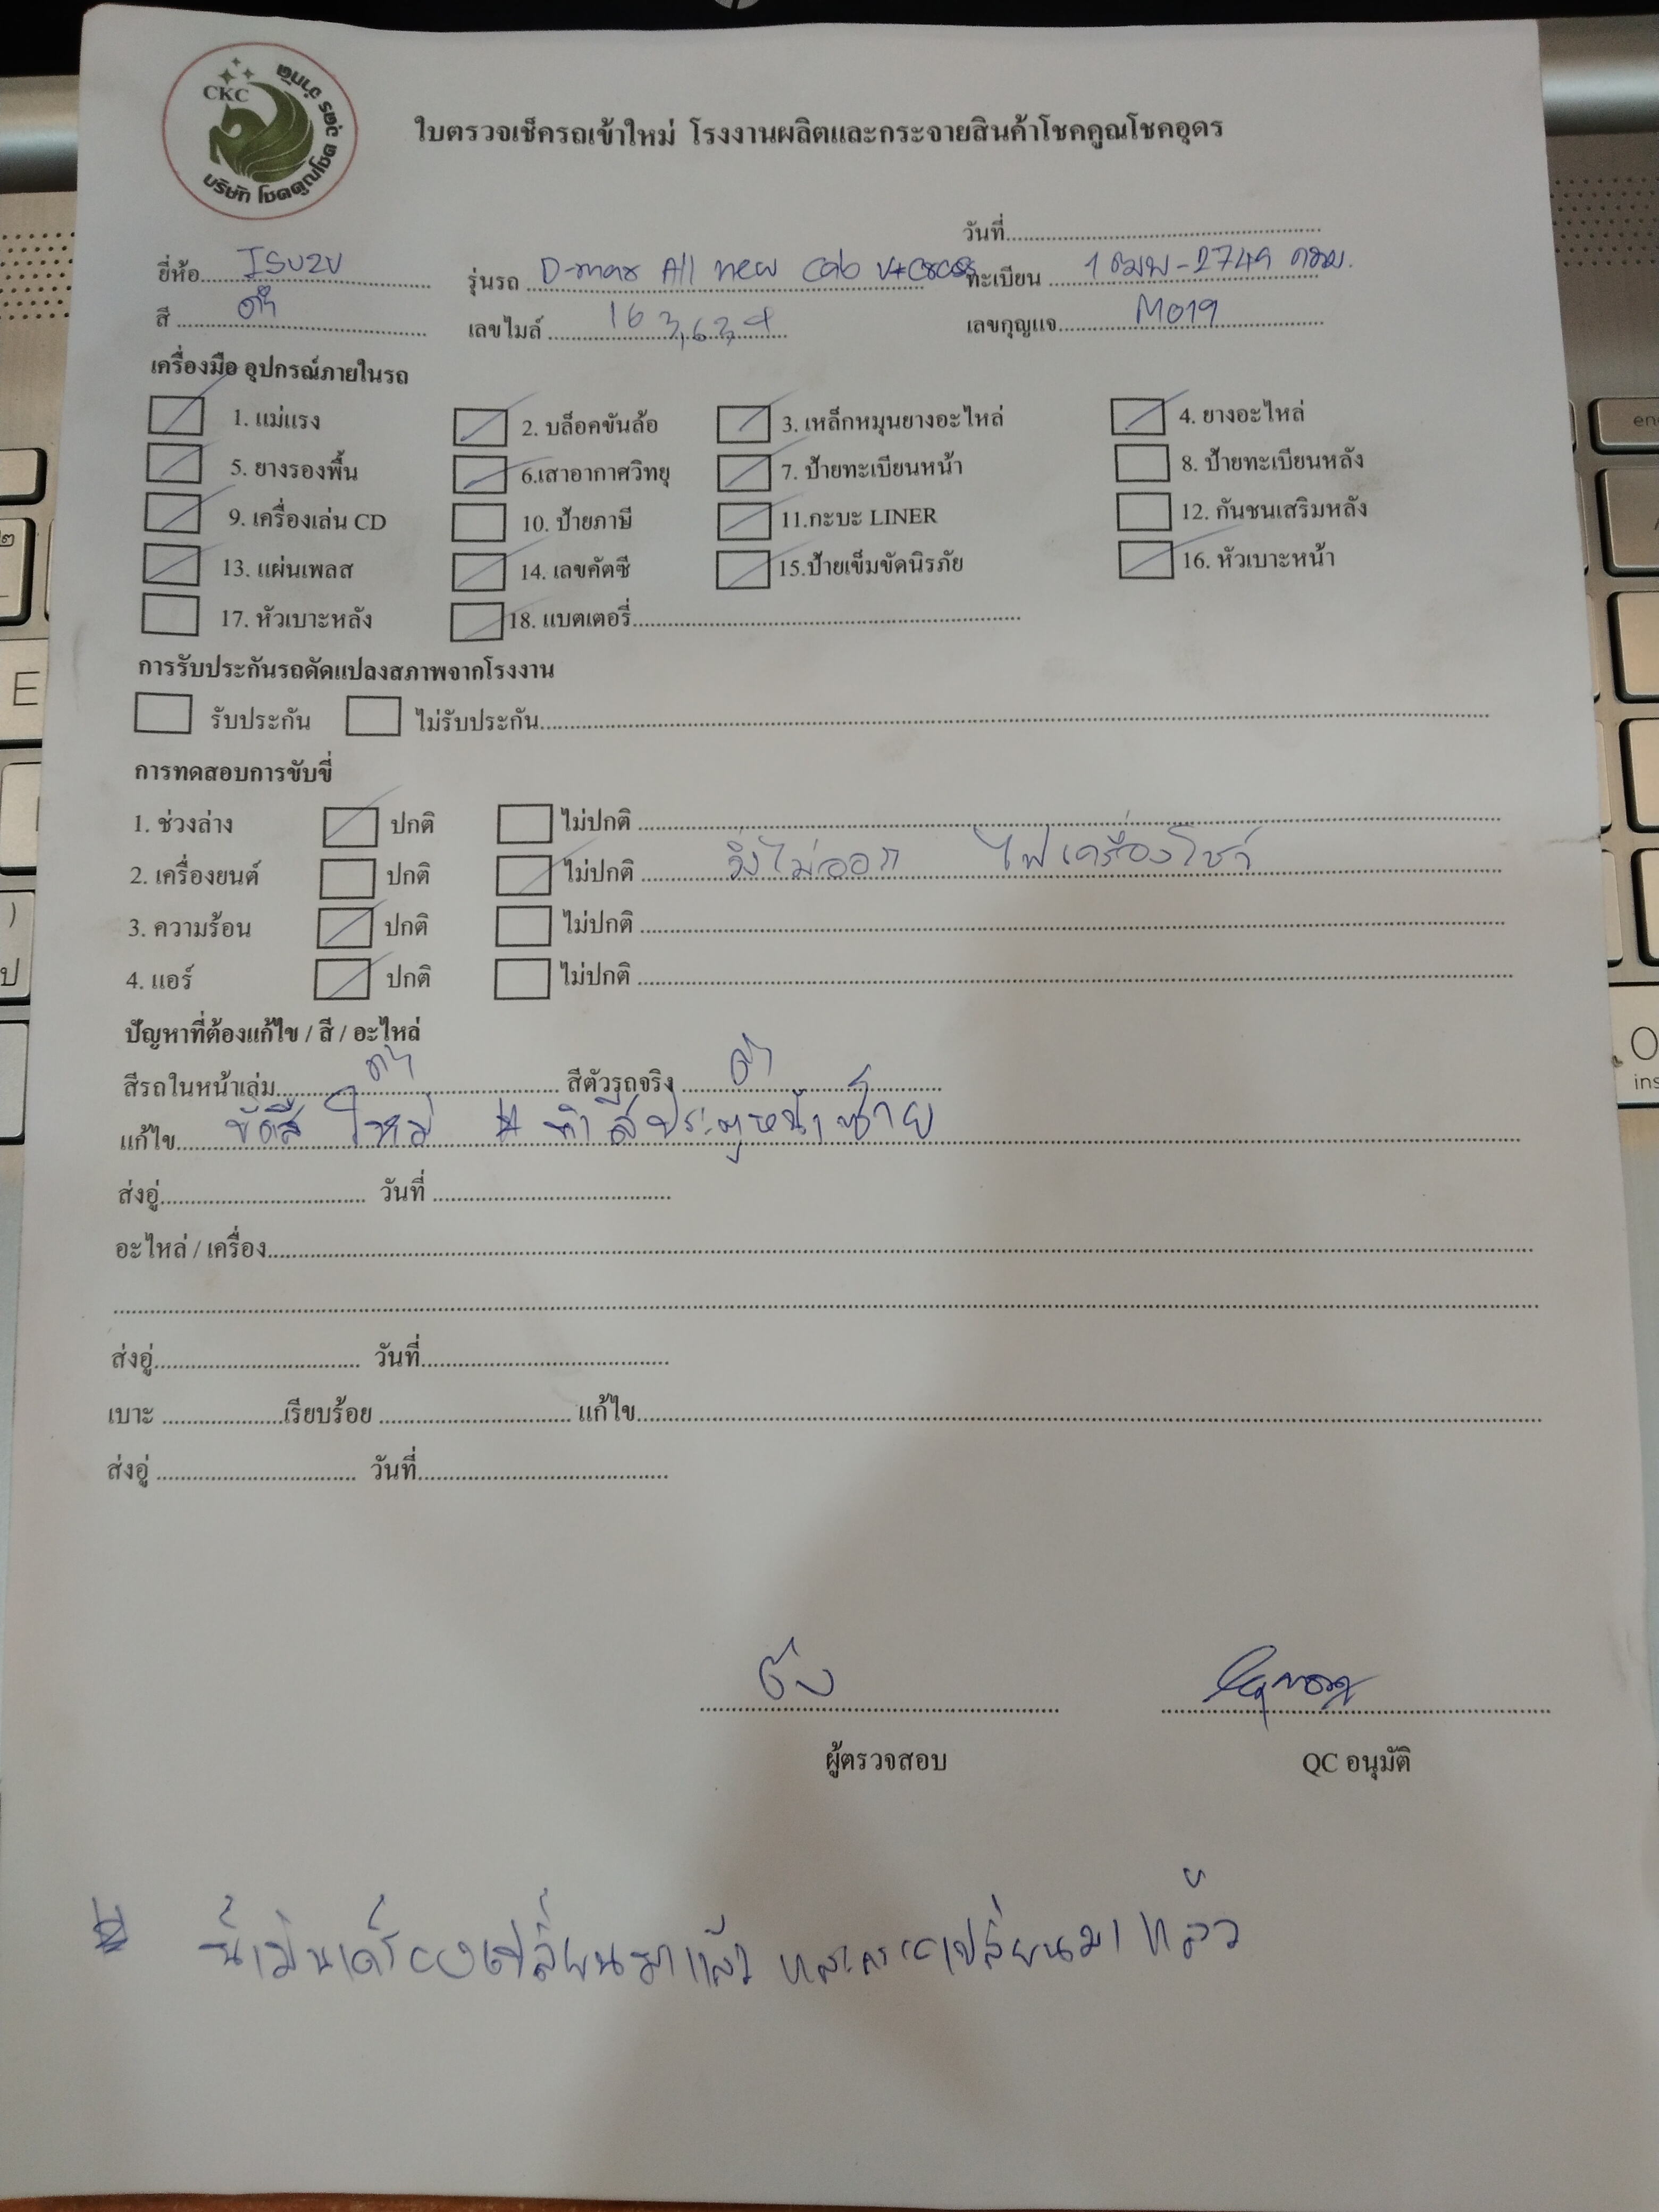 CKC
บริษัท โชคคูณโชค อุดร จำกัด
ใบตรวจเช็ครถเข้าใหม่ โรงงานผลิตและกระจายสินค้าโชคคูณโชคอุดร
วันที่
ยี่ห้อ ISUZU รุ่นรถ D-max All new cab ทะเบียน 2749 กทม.
สี ดำ เลขไมล์ เลขกุญแจ M019
เครื่องมือ อุปกรณ์ภายในรถ
1. แม่แรง 2. บล็อคขันล้อ 3. เหล็กหมุนยางอะไหล่ 4. ยางอะไหล่
5. ยางรองพื้น 6.เสาอากาศวิทยุ 7. ป้ายทะเบียนหน้า 8. ป้ายทะเบียนหลัง
9. เครื่องเล่น CD 10. ป้ายภาษี 11.กะบะ LINER 12. กันชนเสริมหลัง
13. แผ่นเพลส 14. เลขคัตซี 15.ป้ายเข็มขัดนิรภัย 16. หัวเบาะหน้า
17. หัวเบาะหลัง 18. แบตเตอรี่
การรับประกันรถดัดแปลงสภาพจากโรงงาน
รับประกัน ไม่รับประกัน
การทดสอบการขับขี่
1. ช่วงล่าง ปกติ ไม่ปกติ
2. เครื่องยนต์ ปกติ ไม่ปกติ วิ่งไม่ออก ไฟเครื่องโชว์
3. ความร้อน ปกติ ไม่ปกติ
4. แอร์ ปกติ ไม่ปกติ
ปัญหาที่ต้องแก้ไข / สี / อะไหล่
สีรถในหน้าเล่ม ดำ สีตัวรถจริง ดำ
แก้ไข ขัดสี ใหม่ # ทำสีประตูหน้าซ้าย
ส่งอู่ วันที่
อะไหล่ / เครื่อง
ส่งอู่ วันที่
เบาะ เรียบร้อย แก้ไข
ส่งอู่ วันที่
ผู้ตรวจสอบ QC อนุมัติ
# เปลี่ยนมาแล้ว เปลี่ยนมาแล้ว